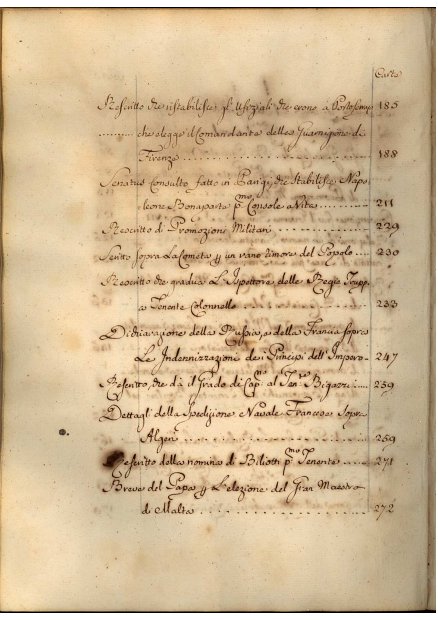 Carte
Rescritto che ristabilisce gl'Ufiziali che erono a Portoferrajo 185
.......... che elegge il Comandante della Guarnigione di
Firenze .................... 188
Senatus Consulto fatto in Parigi, che Stabilisce Napo
leone Bonaparte p.mo Console a Vita .... 211
Rescritto di Promozioni Militari .......... 229
Scritto sopra La Cometa p un vano timore del Popolo .... 230
Rescritto che gradua L'Ispettore delle Regie Trupp.
a Tenente Colonnello .............. 233
Dichiarazione della Russia, e della Francia sopra
Le Indennizzazioni de i Principi dell'Impero. 247
Rescritto, che dà il Grado di Cap.no al Ten.te Bigazzi .... 259
Dettagli della Spedizione Navale Francese Sopra
Algeri .................... 259
Rescritto della nomina di Biliotti p.mo Tenente ..... 271
Breve del Papa p L'elezione del Gran Maestro
di Malta .................... 272